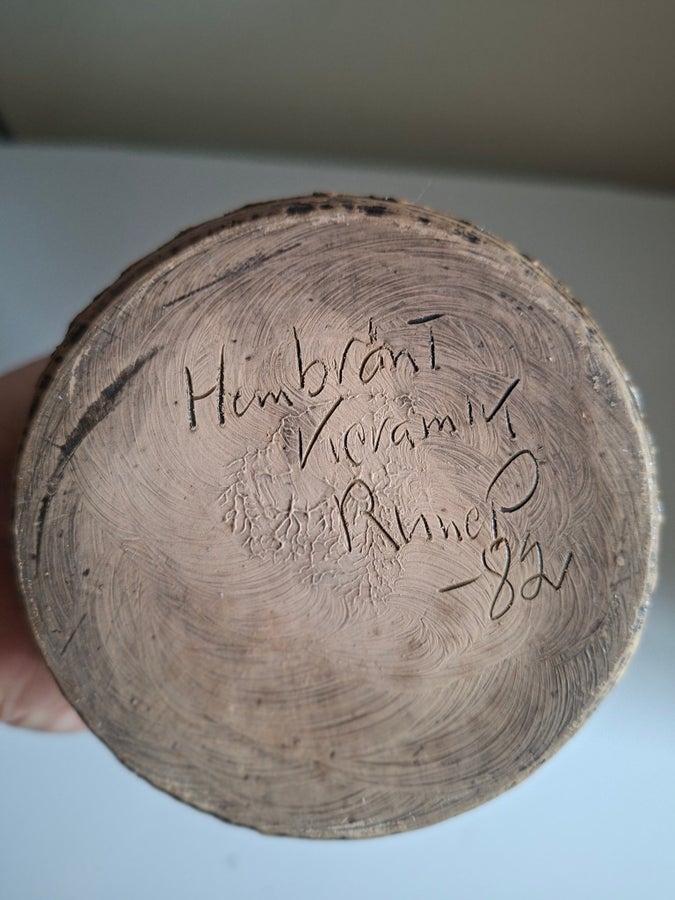 Hembränt
Keramik
Rune P
-82